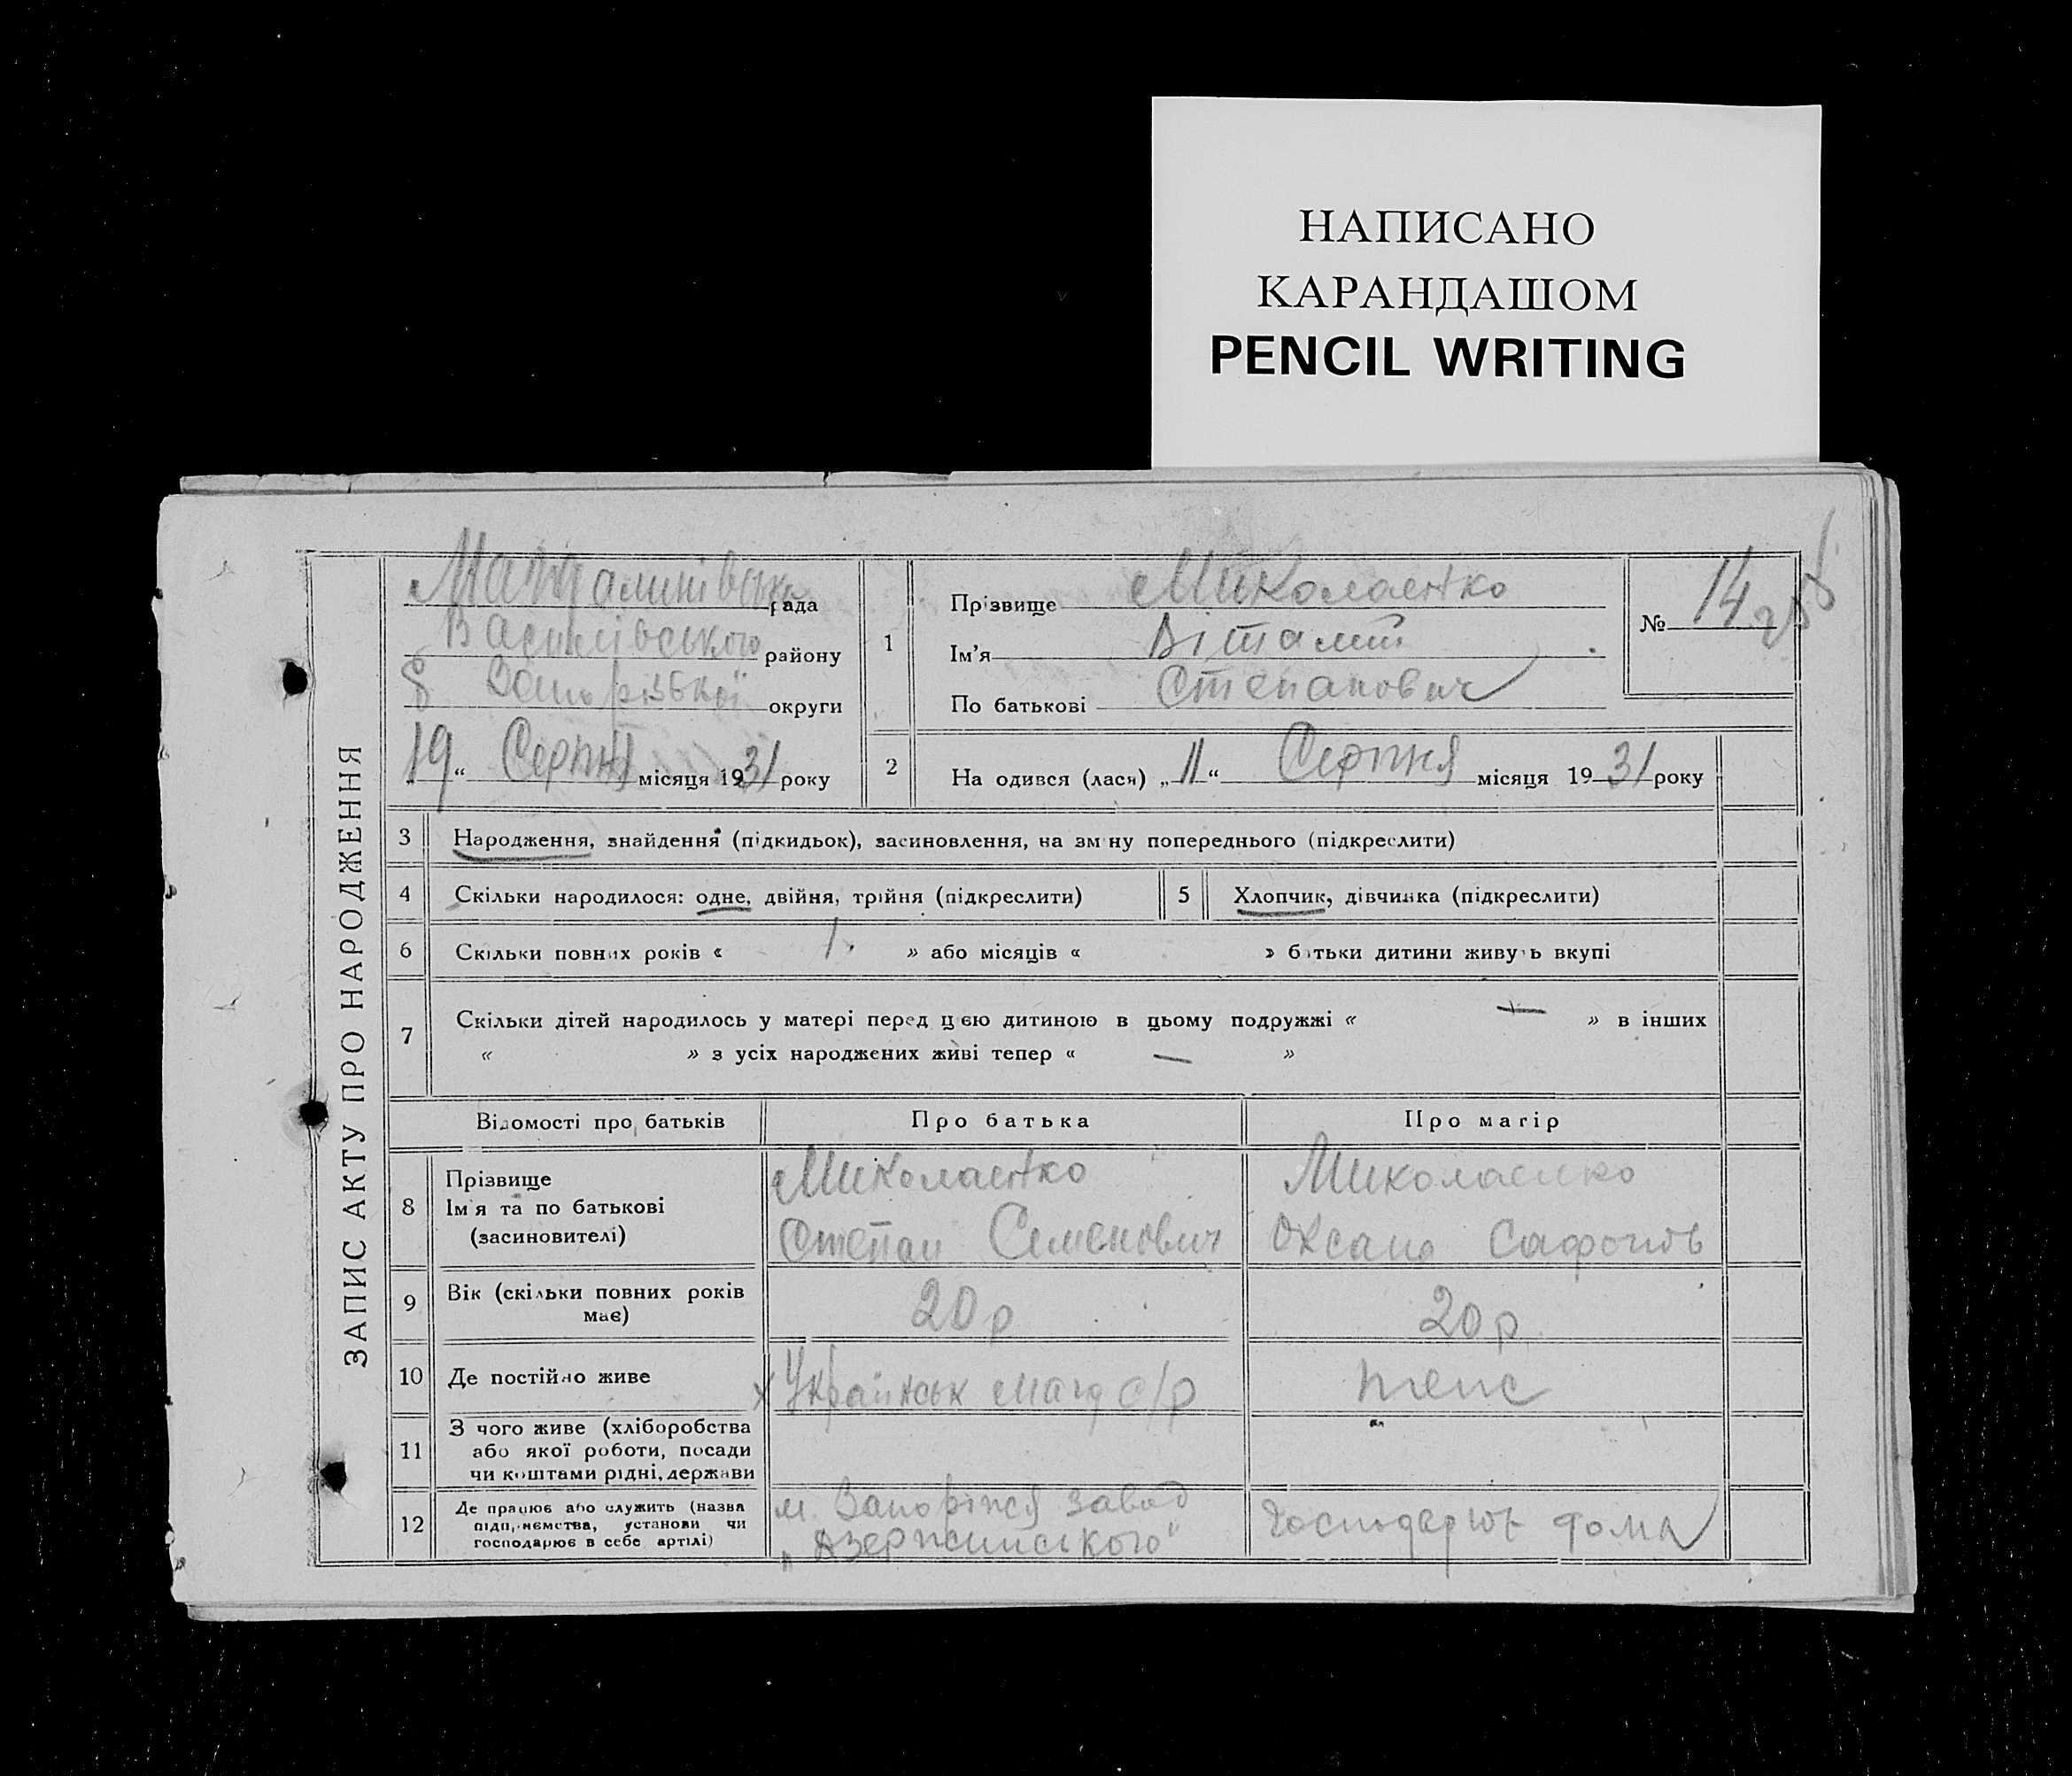 НАПИСАНО
КАРАНДАШОМ
PENCIL WRITING
ЗАПИС АКТУ ПРО НАРОДЖЕННЯ
Магдалинівська рада
Василівського району
Запорізької округи
„19“ Серпня місяця 1931 року
1
Прізвище Миколаєнко
Ім'я Віталий
По батькові Степанович
№ 14
2 На одився (лася) „11“ Серпня місяця 1931 року
3 Народження, знайдення (підкидьок), засиновлення, на зм ну попереднього (підкреслити)
4 Скільки народилося: одне, двійня, трійня (підкреслити) 5 Хлопчик, дівчинка (підкреслити)
6 Скільки повних років « 1. » або місяців « » батьки дитини живуть вкупі
7 Скільки дітей народилось у матері перед цєю дитиною в цьому подружжі « — » в інших
« » з усіх народжених живі тепер « — »
Відомості про батьків Про батька Про матір
8 Прізвище
Ім'я та по батькові
(засиновителі)
Миколаєнко
Степан Семенович
Миколаєнко
Оксана Сафонов
9 Вік (скільки повних років
має)
20 р
20 р
10 Де постійно живе Українськ Магд с/р теж
11 З чого живе (хліборобства
або якої роботи, посади
чи коштами рідні, держави
12 Де працює або служить (назва
підприємства, установи чи
господарює в себе артілі)
м. Запоріжся завод
„Дзержинського“
Господарює дома